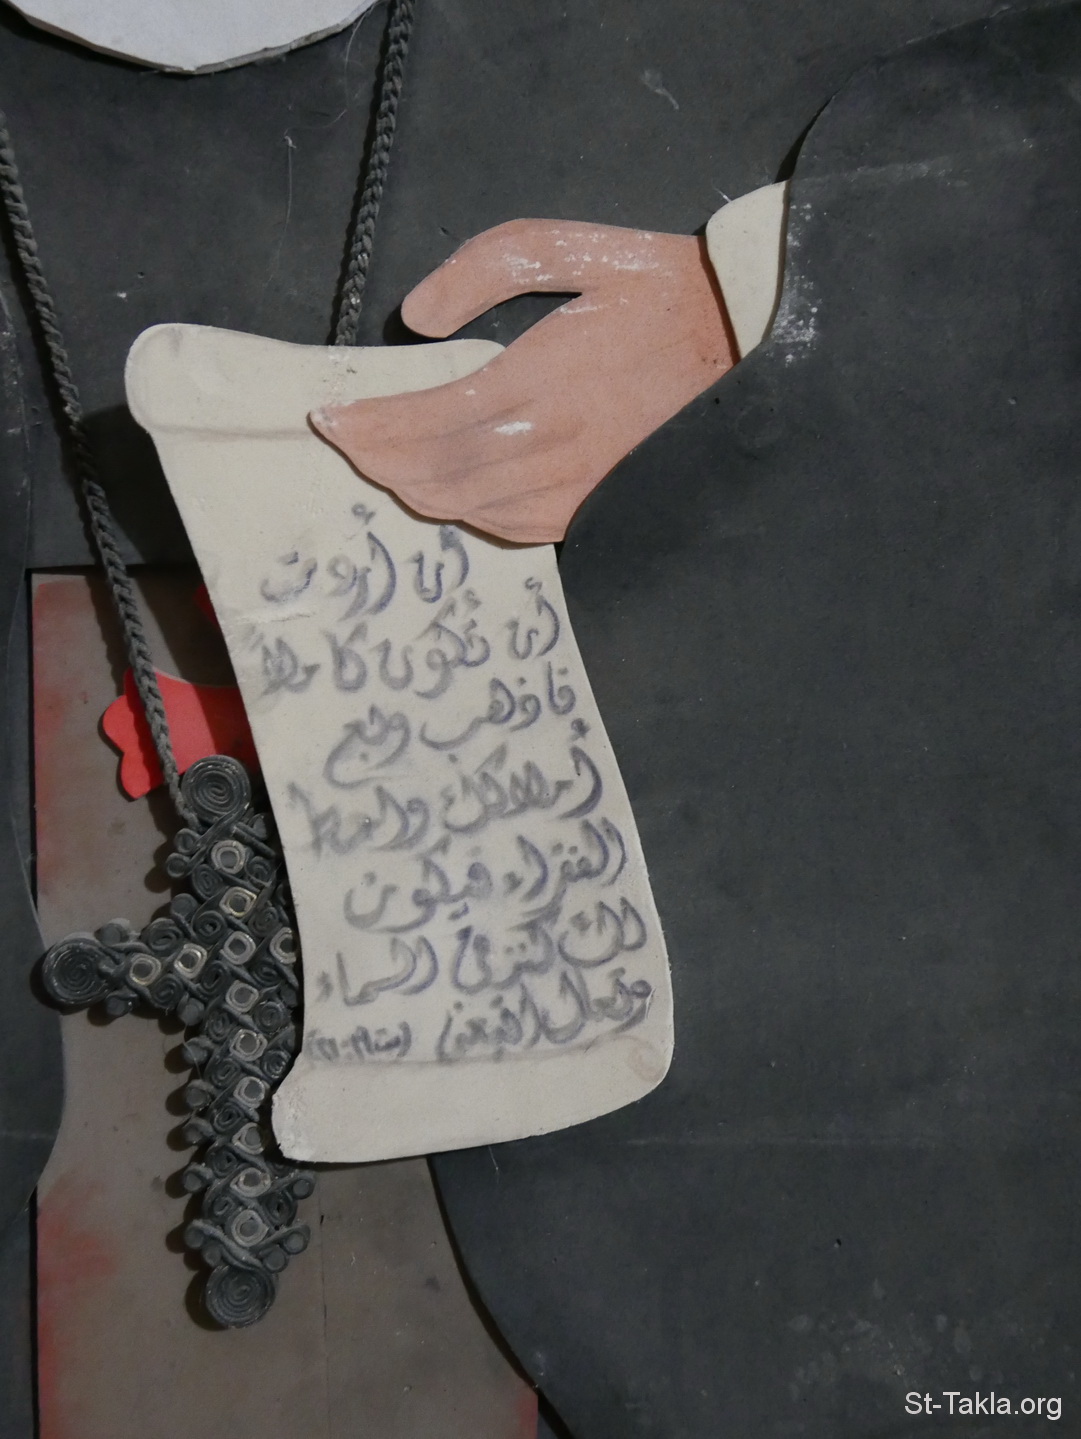 أن أردت
أن تكون كاملاً
فاذهب وبع
أملاكك واعط
الفقراء فيكون
لك كنز في السماء
وتعال اتبعني (مت ١٩: ٢١)
St-Takla.org